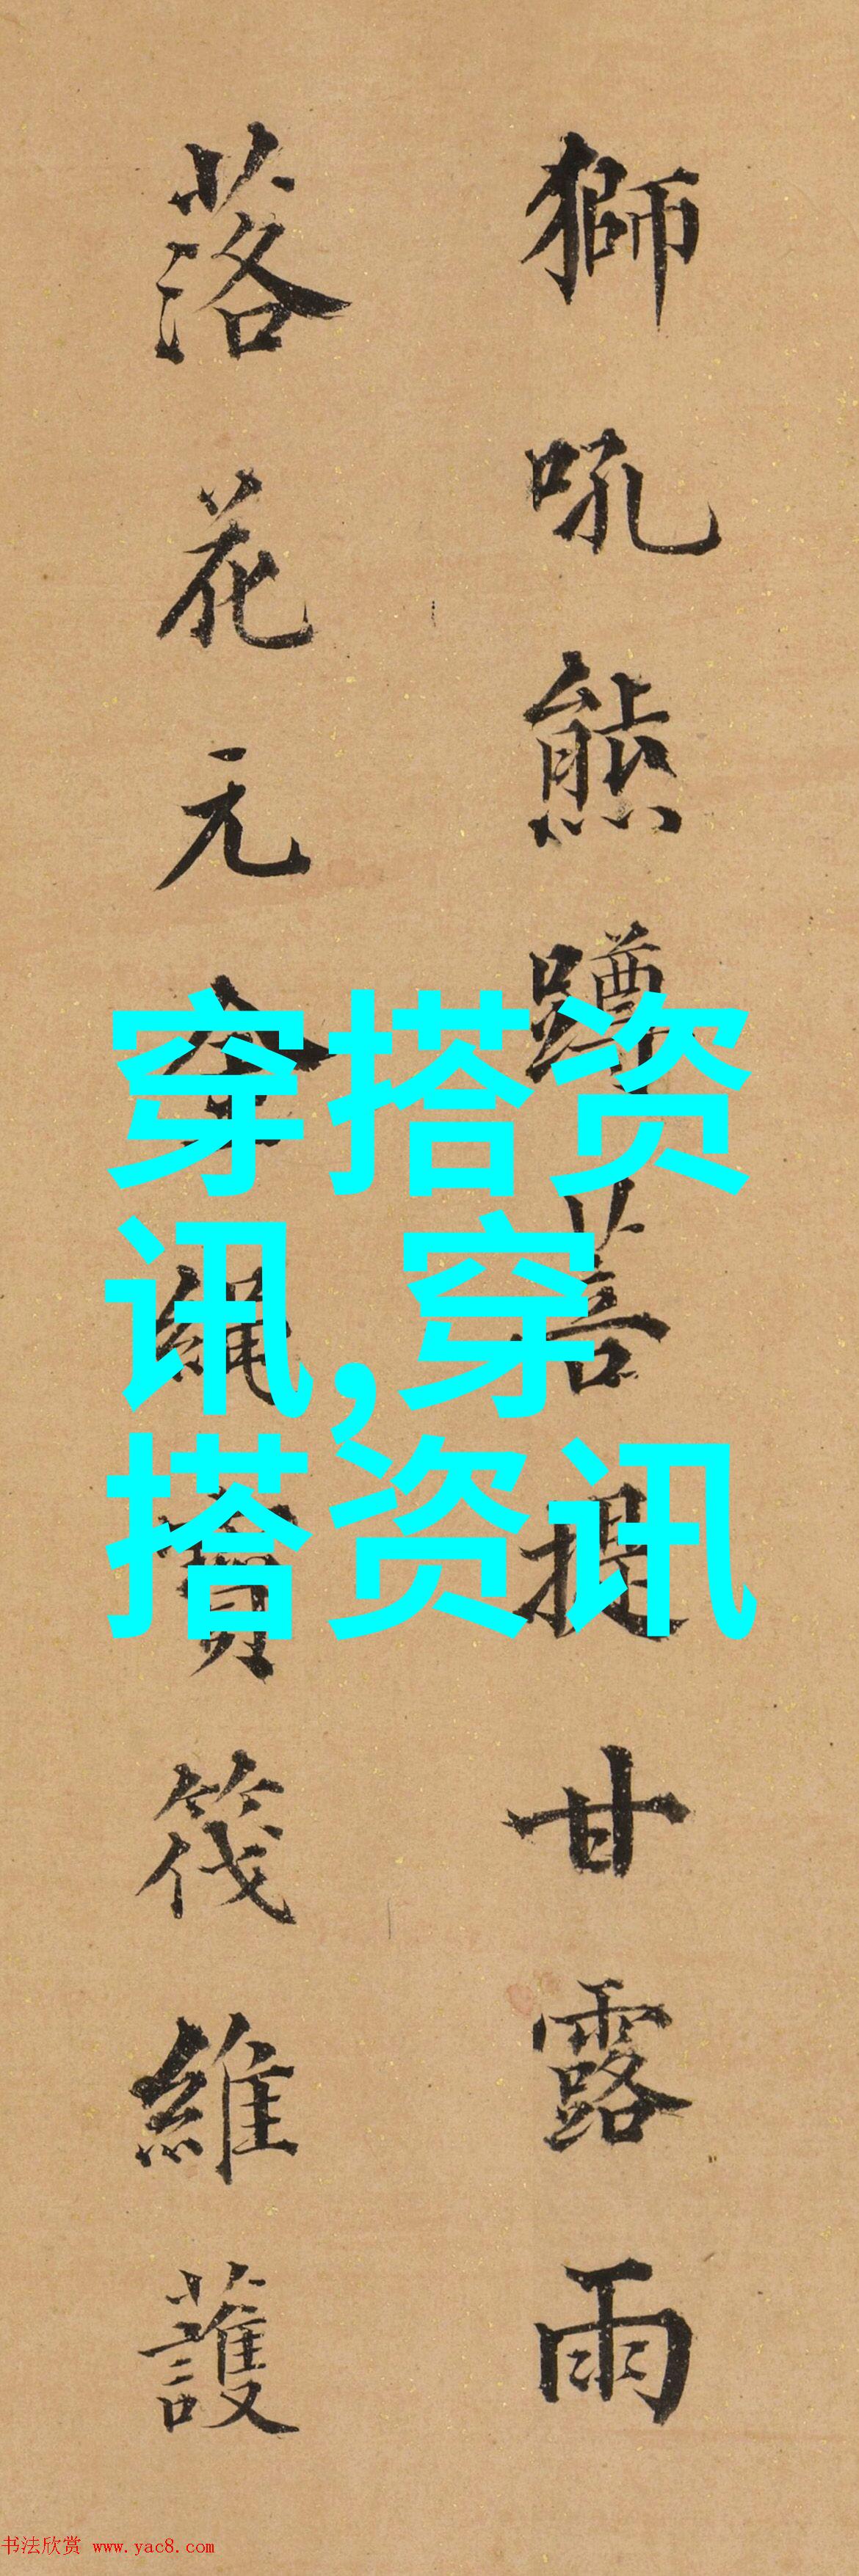 獅吼熊蹲菩提甘露雨
落花元金繩寶筏維護
穿搭资
讯,穿
搭资讯
书法欣赏 www.yac8.com